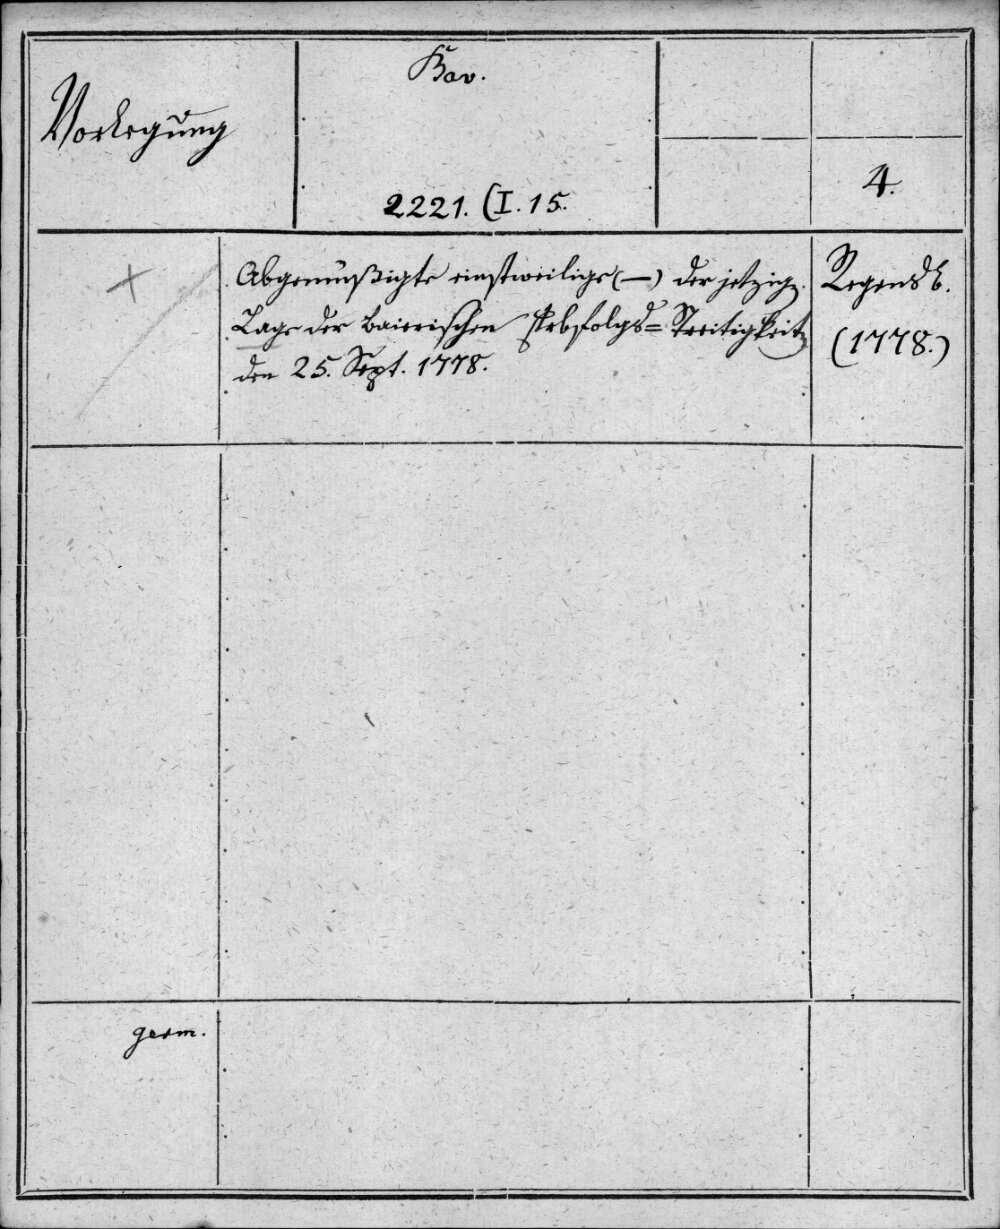 Vorlegung
Bav.
2221. (I. 15.
4.
Abgemüßigte einstweilige (—) der jetzig.
Lage der baierischen Erbfolgs= Streitigkeit
den 25. Sept. 1778.
Regensb.
(1778.)
germ.